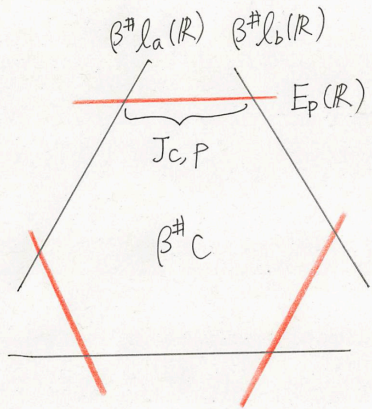 β#ℓa(ℝ) β#ℓb(ℝ)
Ep(ℝ)
JC,P
β#C